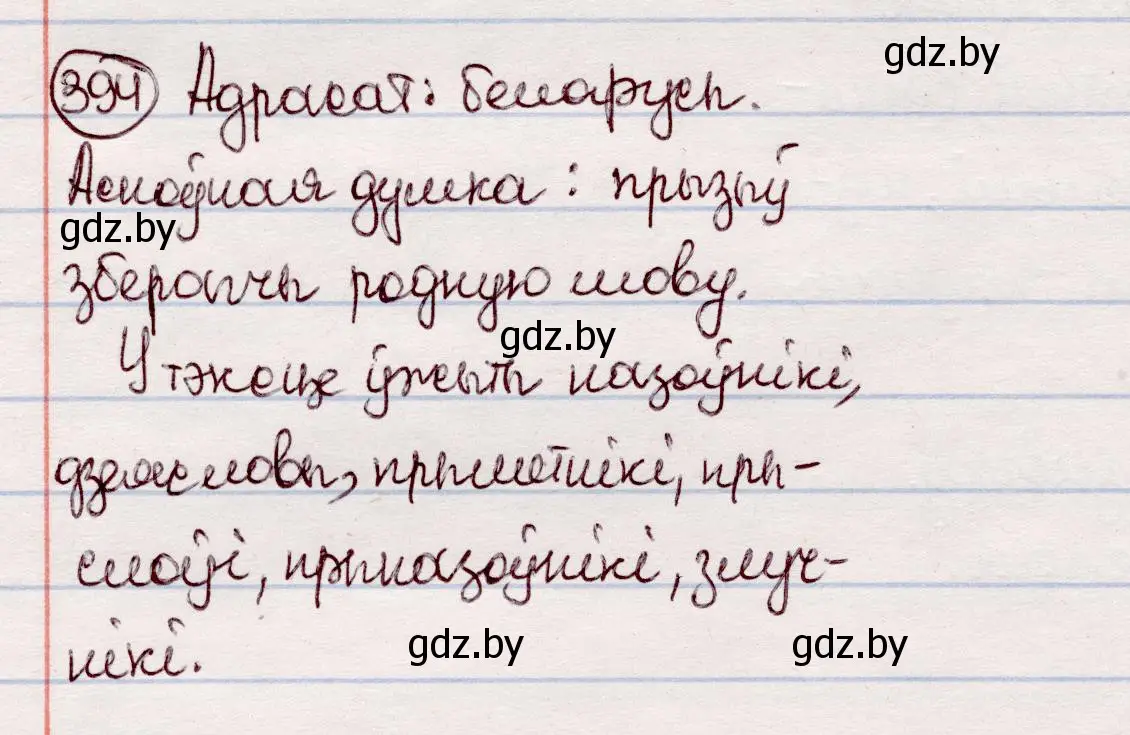 gdz.by
394 Адрасат: Беларусь.
Асноўная думка: прызыў
gdz.by
зберагчы родную мову.
gdz.by
У тэксце ўжыты назоўнікі,
дзеясловы, прыметнікі, пры-
слоўі, прыназоўнікі, злуч-
нікі.
gdz.by gdz.by